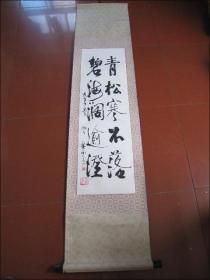 青松寒不落
碧海阔逾澄